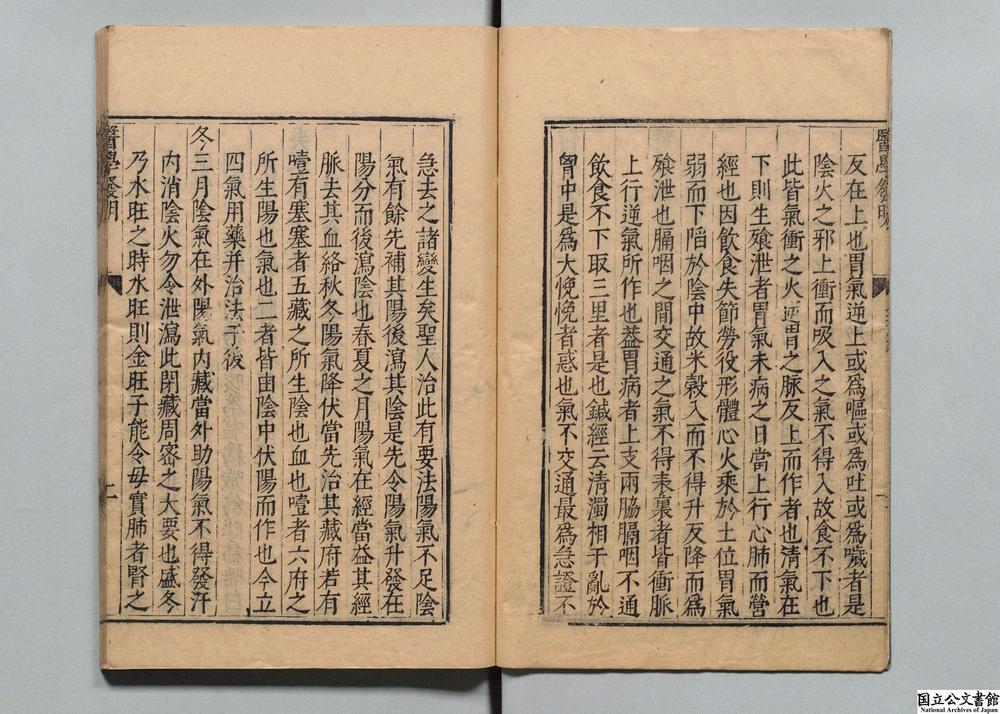 醫學發明
反在上也胃氣逆上或爲嘔或爲吐或爲噦者是
陰火之邪上衝而吸入之氣不得入故食不下也
此皆氣衝之火逆胃之脉反上而作者也清氣在
下則生飱泄者胃氣未病之日當上行心肺而營
經也因飲食失節勞役形體心火乘於土位胃氣
弱而下䧟於陰中故米穀入而不得升反降而爲
飱泄也膈咽之間交通之氣不得表裏者皆衝脈
上行逆氣所作也葢胃病者上支兩脇膈咽不通
飲食不下取三里者是也鍼經云清濁相干亂於
胷中是爲大悗悗者惑也氣不交通最爲急證不
急去之諸變生矣聖人治此有要法陽氣不足陰
氣有餘先補其陽後瀉其陰是先令陽氣升發在
陽分而後瀉陰也春夏之月陽氣在經當益其經
脈去其血絡秋冬陽氣降伏當先治其藏府若有
噎有塞塞者五藏之所生陰也血也噎者六府之
所生陽也氣也二者皆由陰中伏陽而作也今立
四氣用藥并治法于後
冬三月陰氣在外陽氣内藏當外助陽氣不得發汗
内消陰火勿令泄瀉此閉藏周密之大要也盛冬
乃水旺之時水旺則金旺子能令母實肺者腎之
醫學發明
二
国立公文書館
National Archives of Japan